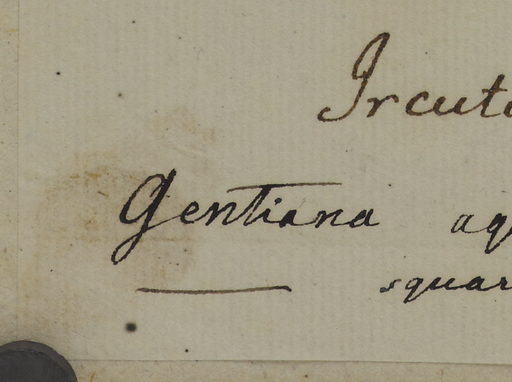 Ircut
Gentiana aq
squar